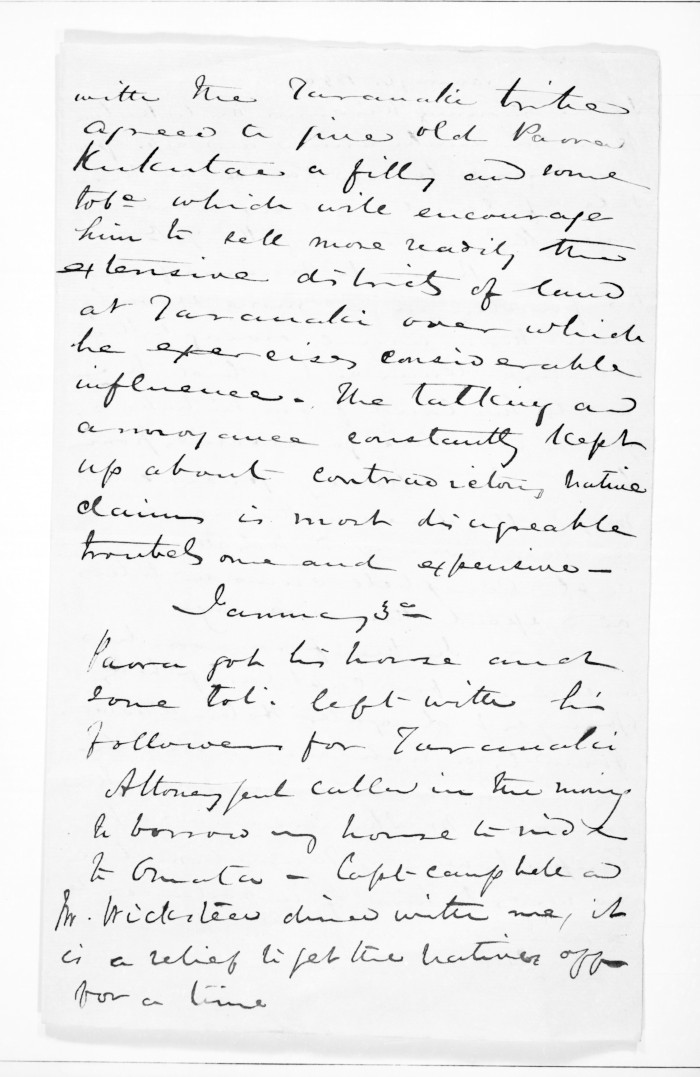 with the Taranaki tribe
agreed to give old Paora
Kukutae a filly and some
tob.e which will encourage
him to sell more readily the
extensive districts of land
at Taranaki over which
he exercises considerable
influence. The talking and
annoyance constantly kept
up about contradictory native
claims is most disagreable
troublesome and expensive —
January 3d
Paora got his horse and
some tob. left with his
followers for Taranaki
Attorney Genl called in the morng
to borrow my horse to ride
to Omata — Capt Campbell and
Mr. Wicksteed dined with me, it
is a relief to get the natives off
for a time